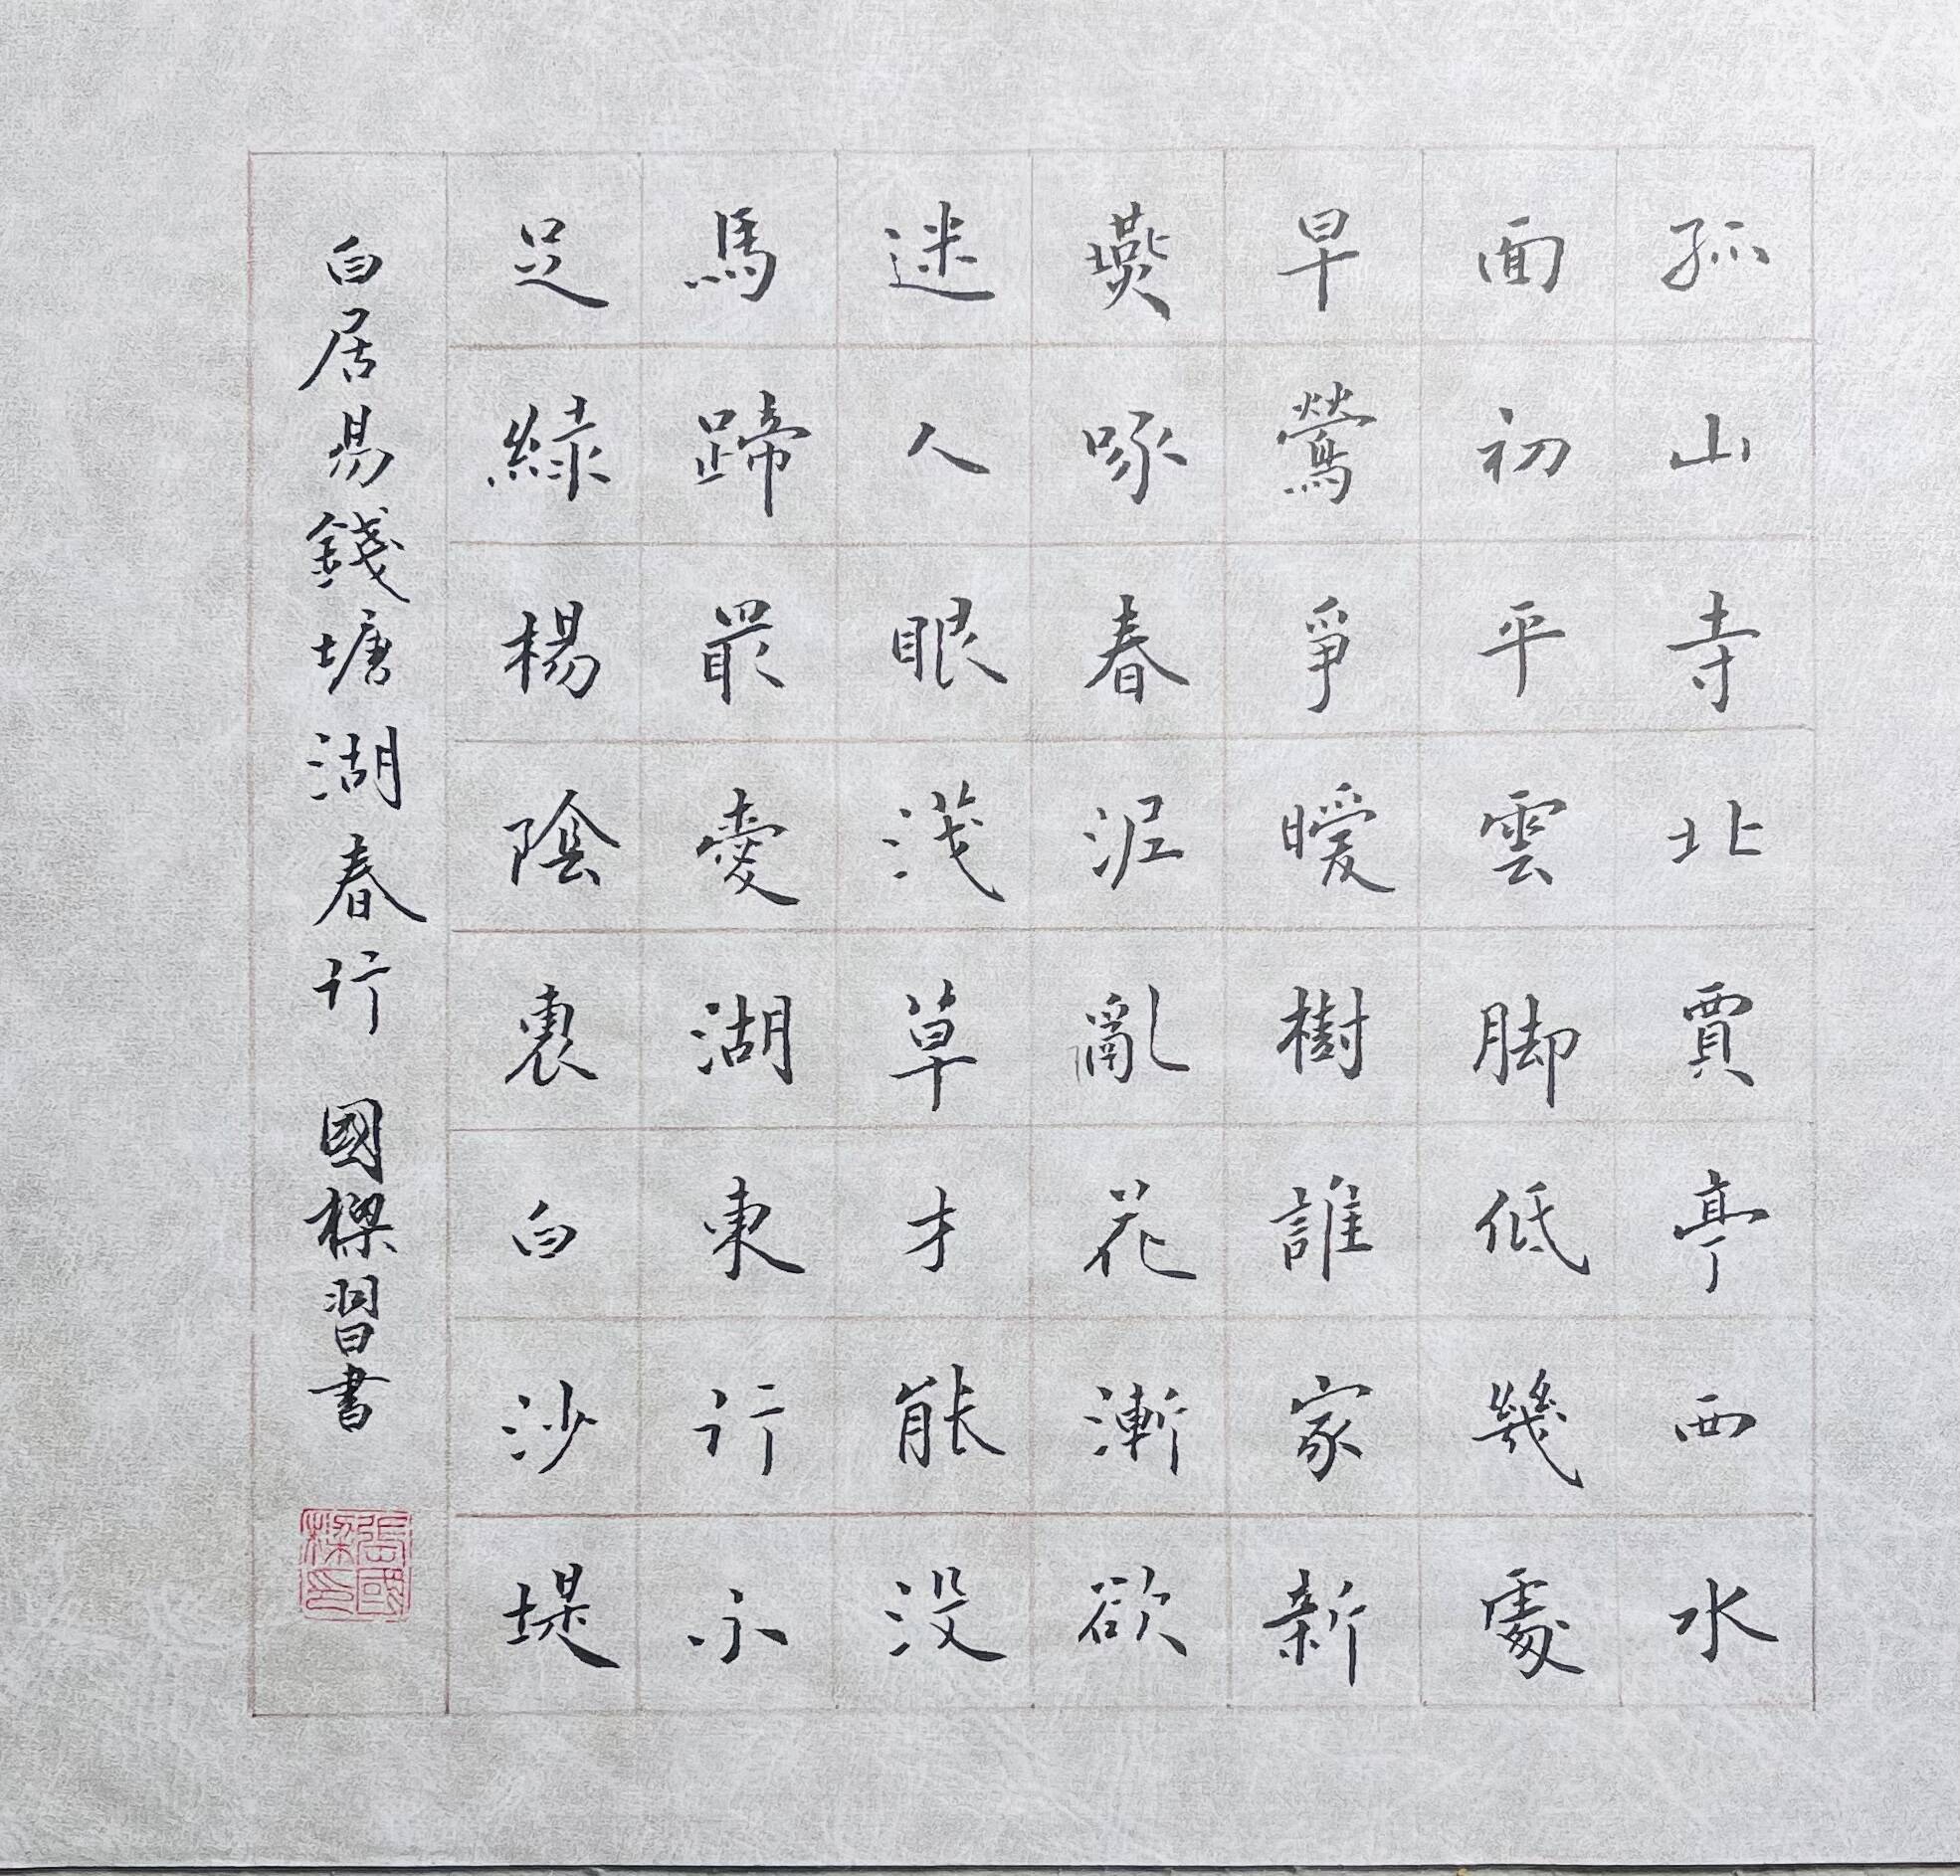 孤山寺北賈亭西水
面初平雲脚低幾處
早鶯爭暖樹誰家新
燕啄春泥亂花漸欲
迷人眼淺草才能没
馬蹄最愛湖東行不
足綠楊陰裏白沙堤
白居易錢塘湖春行 國樑習書
張國樑印